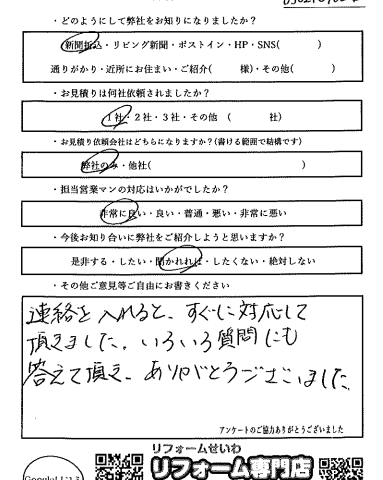 ・どのようにして弊社をお知りになりましたか？
新聞折込・リビング新聞・ポストイン・HP・SNS(　　　)
通りがかり・近所にお住まい・ご紹介(　　　様)・その他(　　　)
・お見積りは何社依頼されましたか？
1社・2社・3社・その他（　　　社）
・お見積り依頼会社はどちらになりますか？(書ける範囲で結構です)
弊社のみ・他社(　　　)
・担当営業マンの対応はいかがでしたか？
非常に良い・良い・普通・悪い・非常に悪い
・今後お知り合いに弊社をご紹介しようと思いますか？
是非する・したい・聞かれれば・したくない・絶対しない
・その他ご意見等ご自由にお書きください
連絡を入れると、すぐに対応して
頂きました。いろいろ質問にも
答えて頂き、ありがとうございました。
アンケートのご協力ありがとうございました
リフォームせいわ
リフォーム専門店